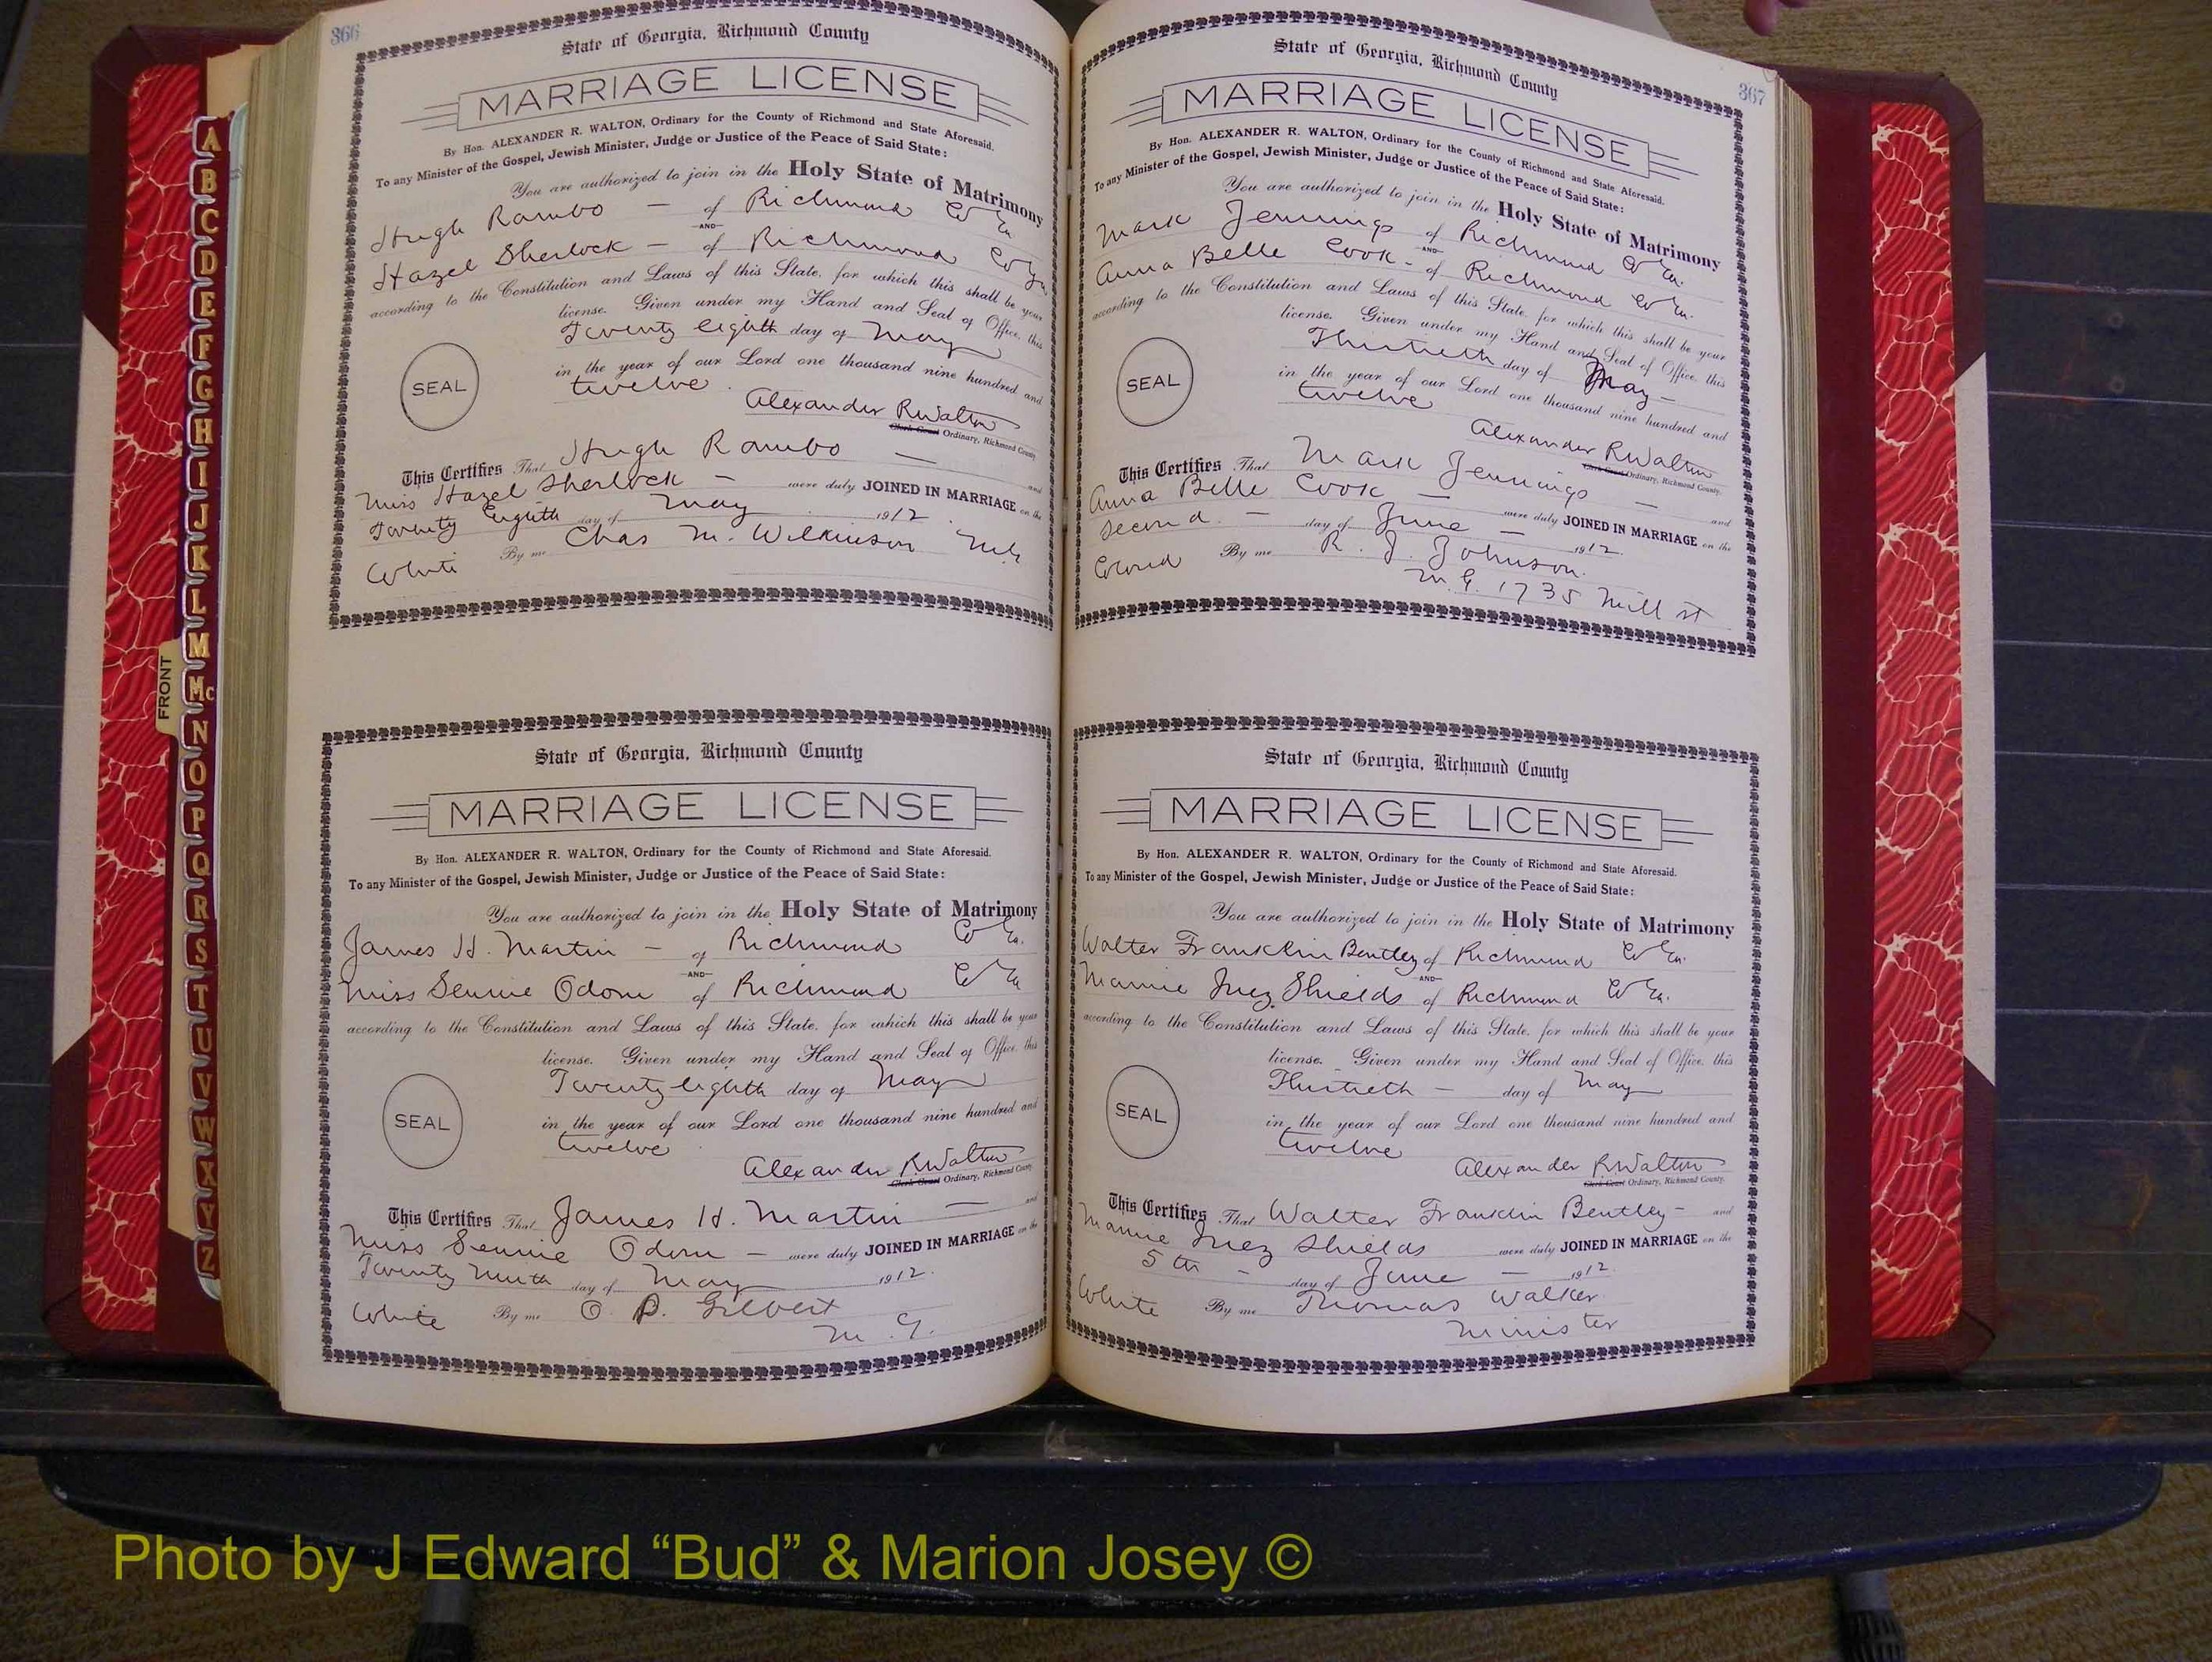 366
State of Georgia, Richmond County
MARRIAGE LICENSE
By Hon. ALEXANDER R. WALTON, Ordinary for the County of Richmond and State Aforesaid.
To any Minister of the Gospel, Jewish Minister, Judge or Justice of the Peace of Said State:
You are authorized to join in the Holy State of Matrimony
Hugh Rambo — of Richmond Co Ga
AND
Hazel Sherlock — of Richmond Co Ga
according to the Constitution and Laws of this State, for which this shall be your
license. Given under my Hand and Seal of Office, this
Twenty eighth day of May
in the year of our Lord one thousand nine hundred and
twelve
SEAL
Alexander R Walton
Clerk Court Ordinary, Richmond County
This Certifies That Hugh Rambo — and
Miss Hazel Sherlock — were duly JOINED IN MARRIAGE on the
Twenty Eighth day of May 1912.
White By me Chas M. Wilkinson
State of Georgia, Richmond County
MARRIAGE LICENSE
By Hon. ALEXANDER R. WALTON, Ordinary for the County of Richmond and State Aforesaid.
To any Minister of the Gospel, Jewish Minister, Judge or Justice of the Peace of Said State:
You are authorized to join in the Holy State of Matrimony
James H. Martin — of Richmond Co Ga.
AND
Miss Odom of Richmond Co Ga
according to the Constitution and Laws of this State, for which this shall be your
license. Given under my Hand and Seal of Office, this
Twenty eighth day of May
in the year of our Lord one thousand nine hundred and
twelve
SEAL
Alexander R Walton
Clerk Court Ordinary, Richmond County
This Certifies That James H. Martin — and
Miss Odom — were duly JOINED IN MARRIAGE on the
Twenty Ninth day of May 1912.
White By me O. P. Gilbert
M. G.
367
State of Georgia, Richmond County
MARRIAGE LICENSE
By Hon. ALEXANDER R. WALTON, Ordinary for the County of Richmond and State Aforesaid.
To any Minister of the Gospel, Jewish Minister, Judge or Justice of the Peace of Said State:
You are authorized to join in the Holy State of Matrimony
Mark Jennings of Richmond Co Ga.
AND
Anna Belle Cook - of Richmond Co Ga.
according to the Constitution and Laws of this State, for which this shall be your
license. Given under my Hand and Seal of Office, this
Thirtieth day of May —
in the year of our Lord one thousand nine hundred and
twelve
SEAL
Alexander R Walton
Clerk Court Ordinary, Richmond County.
This Certifies That Mark Jennings — and
Anna Belle Cook — were duly JOINED IN MARRIAGE on the
Second — day of June — 1912.
Colored By me R. J. Johnson.
M. G. 1735 Mill st
State of Georgia, Richmond County
MARRIAGE LICENSE
By Hon. ALEXANDER R. WALTON, Ordinary for the County of Richmond and State Aforesaid.
To any Minister of the Gospel, Jewish Minister, Judge or Justice of the Peace of Said State:
You are authorized to join in the Holy State of Matrimony
Walter Franklin Bentley of Richmond Co Ga.
AND
Mamie Inez Shields of Richmond Co Ga.
according to the Constitution and Laws of this State, for which this shall be your
license. Given under my Hand and Seal of Office, this
Thirtieth — day of May
in the year of our Lord one thousand nine hundred and
twelve
SEAL
Alexander R Walton
Clerk Court Ordinary, Richmond County.
This Certifies That Walter Franklin Bentley - and
Mamie Inez Shields were duly JOINED IN MARRIAGE on the
5th - day of June — 1912.
White By me Thomas Walker
Minister
FRONT
A
B
C
D
E
F
G
H
I
J
K
L
M
Mc
N
O
P
Q
R
S
T
U
V
W
X
Y
Z
Photo by J Edward “Bud” & Marion Josey ©